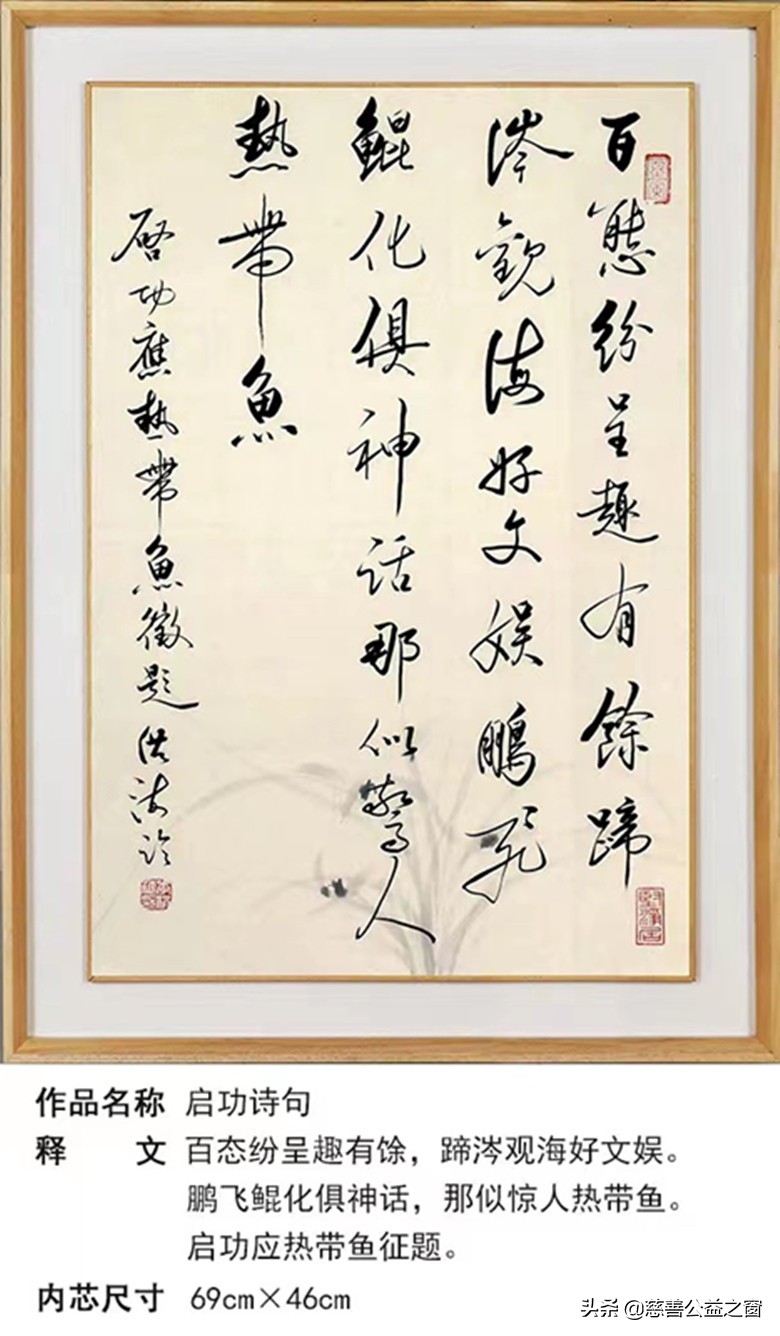 百態紛呈趣有餘蹄
涔觀海好文娱鵬飛
鯤化俱神話那似驚人
熱帶魚
啓功應熱帶魚徵題洪海
作品名称 启功诗句
释 文 百态纷呈趣有馀，蹄涔观海好文娱。
鹏飞鲲化俱神话，那似惊人热带鱼。
启功应热带鱼征题。
内芯尺寸 69cm×46cm
头条 @慈善公益之窗